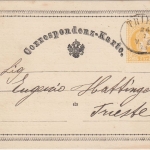 Correspondenz-Karte.
Sig
Eugenio Hattinger
Trieste